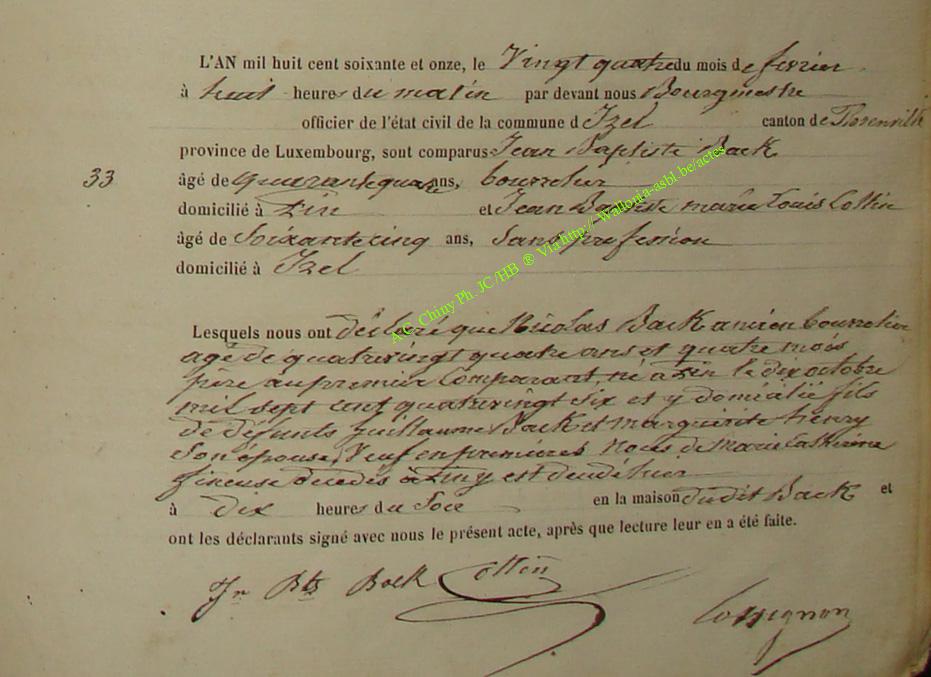 L'AN mil huit cent soixante et onze, le Vingt quatre du mois de fevrier
à huit heures du matin par devant nous Bourgmestre
officier de l'état civil de la commune d Izel canton de Florenville
province de Luxembourg, sont comparus Jean Baptiste Back
33 âgé de quarante quatre ans, bourrelier
domicilié à Pin et Jean Baptiste marie Louis Collin
âgé de Soixante cinq ans, Sans profession
domicilié à Izel
A.C. Chiny Ph. JC /HB ® Via http://Wallonia-asbl.be/actes
Lesquels nous ont déclaré que Nicolas Back ancien bourrelier
agé de quatrevingt quatre ans et quatre mois
père au premier Comparant, né a Pin le dix octobre
mil sept cent quatrevingt Six et y domicilié fils
de défunts Guillaume Back et marguerite henry
Son épouse, Veuf en premières Noces de Marie Catherine
a Pin y est décédé hier
à dix heures du Soir en la maison dudit Back et
ont les déclarants signé avec nous le présent acte, après que lecture leur en a été faite.
Jn Bte Back Collin